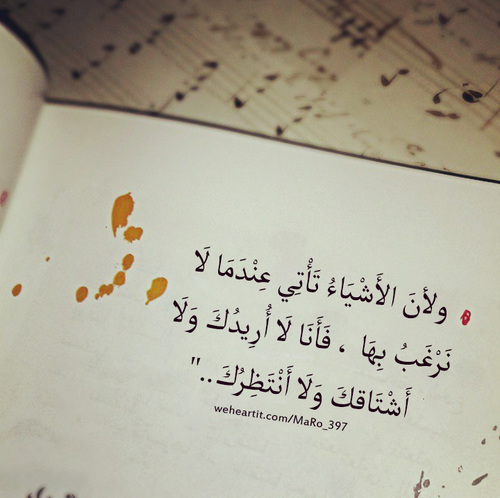 ولأنَ الأَشْيَاءُ تَأْتِي عِنْدَمَا لَا
نَرْغَبُ بِهَا ، فَأَنَا لَا أُرِيدُكَ وَلَا
أَشْتَاقكَ وَلَا أَنْتَظِرُكَ.."
weheartit.com/MaRo_397